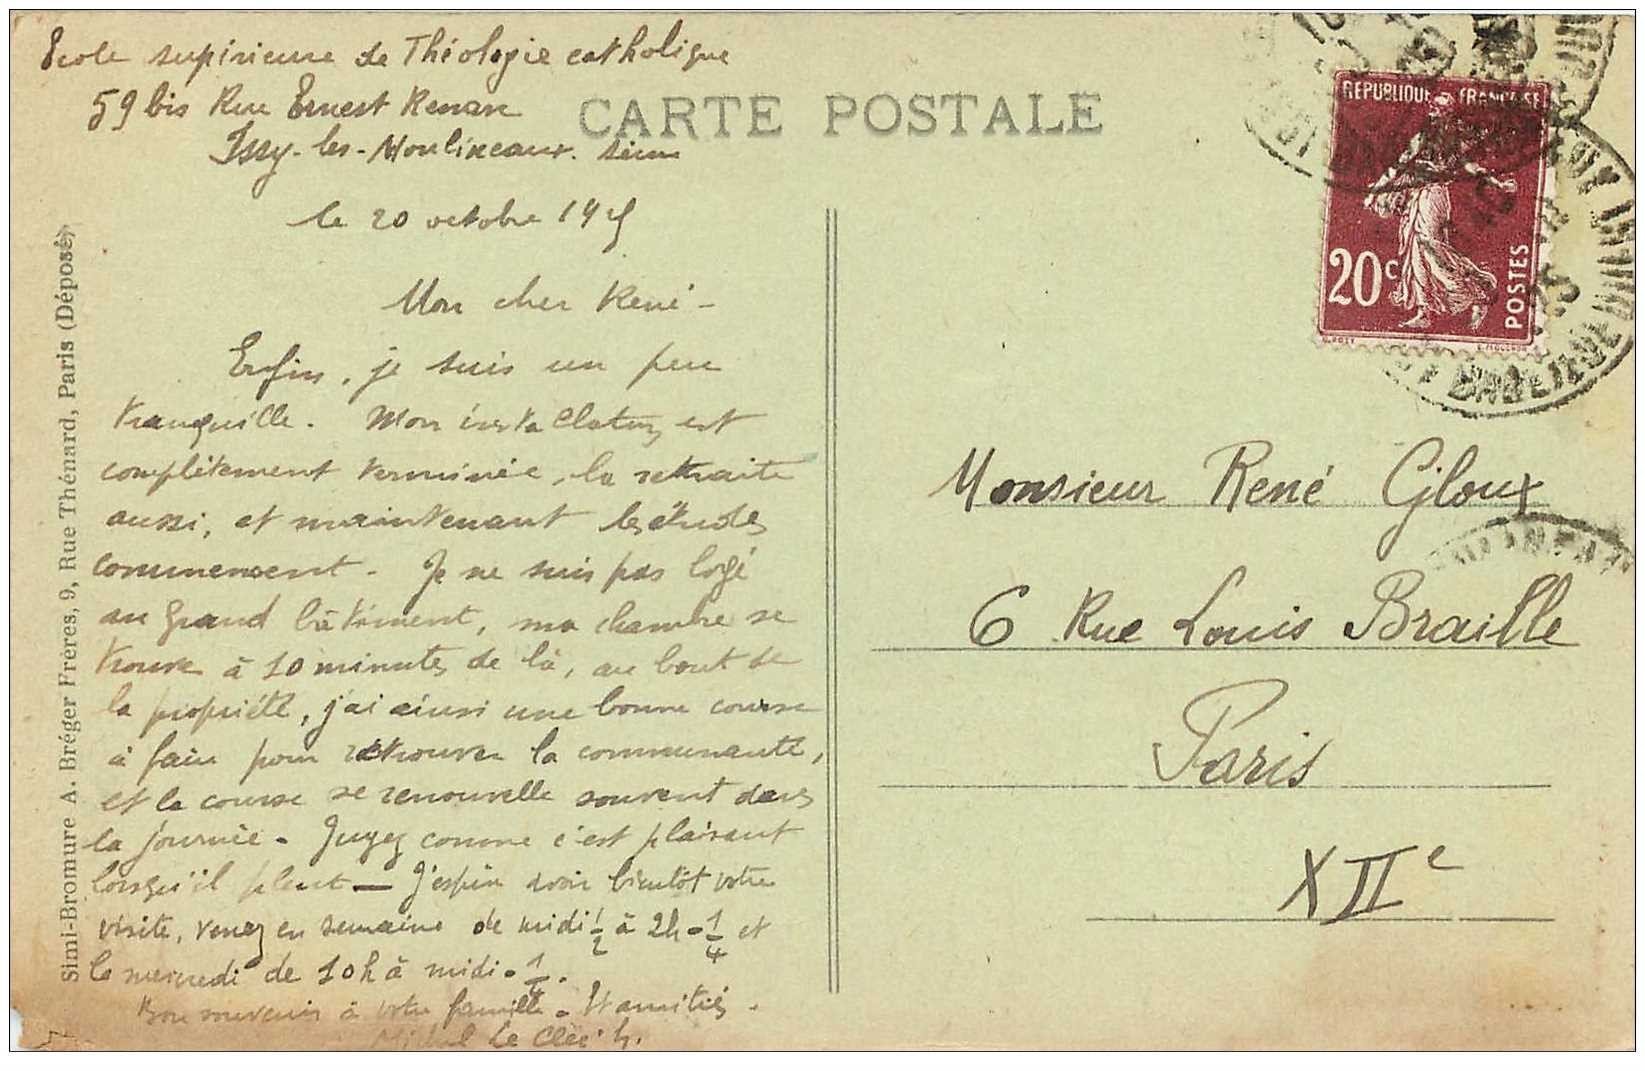 Ecole supérieure de Théologie catholique
59 bis Rue Ernest Renan
Issy-les-Moulineaux. Seine
le 20 octobre
Mon cher René -
Enfin, je suis un peu
tranquille. Mon installation est
complètement terminée, la retraite
aussi, et maintenant les études
commencent. Je ne suis pas logé
au grand bâtiment, ma chambre se
trouve à 10 minutes de là, au bout de
la propriété, j'ai ainsi une bonne course
à faire pour retrouver la communauté,
et la course se renouvelle souvent dans
la journée. Jugez comme c'est plaisant
lorsqu'il pleut — J'espère avoir bientôt votre
visite, venez en semaine de midi 1/2 à 2h - 1/4 et
le mercredi de 10h à midi - 1/4.
Bon souvenir à votre famille. Et amitiés.
Michel Le
CARTE POSTALE
Simi-Bromure A. Bréger Frères, 9, Rue Thénard, Paris (Déposé)
REPUBLIQUE FRANÇAISE
20c
POSTES
Monsieur René Gloux
6 Rue Louis Braille
Paris
XIIe